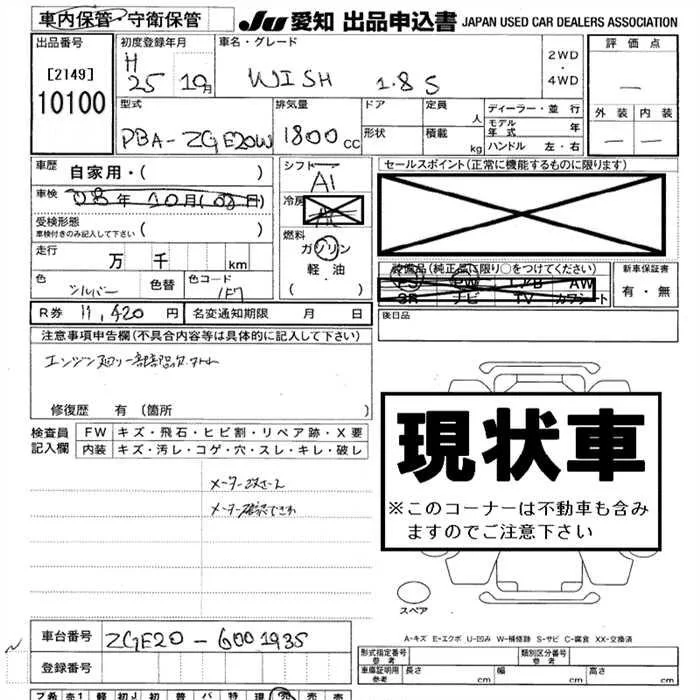 車内保管・守衛保管
JU 愛知 出品申込書 JAPAN USED CAR DEALERS ASSOCIATION
出品番号 初度登録年月 車名・グレード 評価点
[2149] H 25 10月 WISH 1.8S 2WD・4WD —
10100
型式 排気量 ドア 定員 人 ディーラー・並行 外装 内装
PBA-ZGE20W 1800cc 形状 積載 kg モデル年式 年 — —
ハンドル 左・右
車歴 自家用・( ) シフト AI セールスポイント(正常に機能するものに限ります)
車検 年 10月( 日) 冷房
受検形態 車検付きのみ記入して下さい ( ) 燃料 ガソリン
走行 万 千 km 軽油 ( ・ ) 装備品(純正品に限り○をつけてください) 新車保証書
色 シルバー 色替 色コード 1F7 PS PW エアB AW 有・無
SR ナビ TV カワシート
R券 11,420円 名変通知期限 月 日 後日品
注意事項申告欄(不具合内容等は具体的に記入して下さい)
修復歴 有(箇所 )
現状車
※このコーナーは不動車も含み
ますのでご注意下さい
検査員記入欄 FW キズ・飛石・ヒビ割・リペア跡・X要
内装 キズ・汚レ・コゲ・穴・スレ・キレ・破レ
スペア
A-キズ E-エクボ U-凹み W-補修跡 S-サビ C-腐食 XX-交換済
車台番号 ZGE20-6001935 形式指定番号 参考 類別区分番号 参考
登録番号 車庫証明用 参考 長さ cm 幅 cm 高さ cm